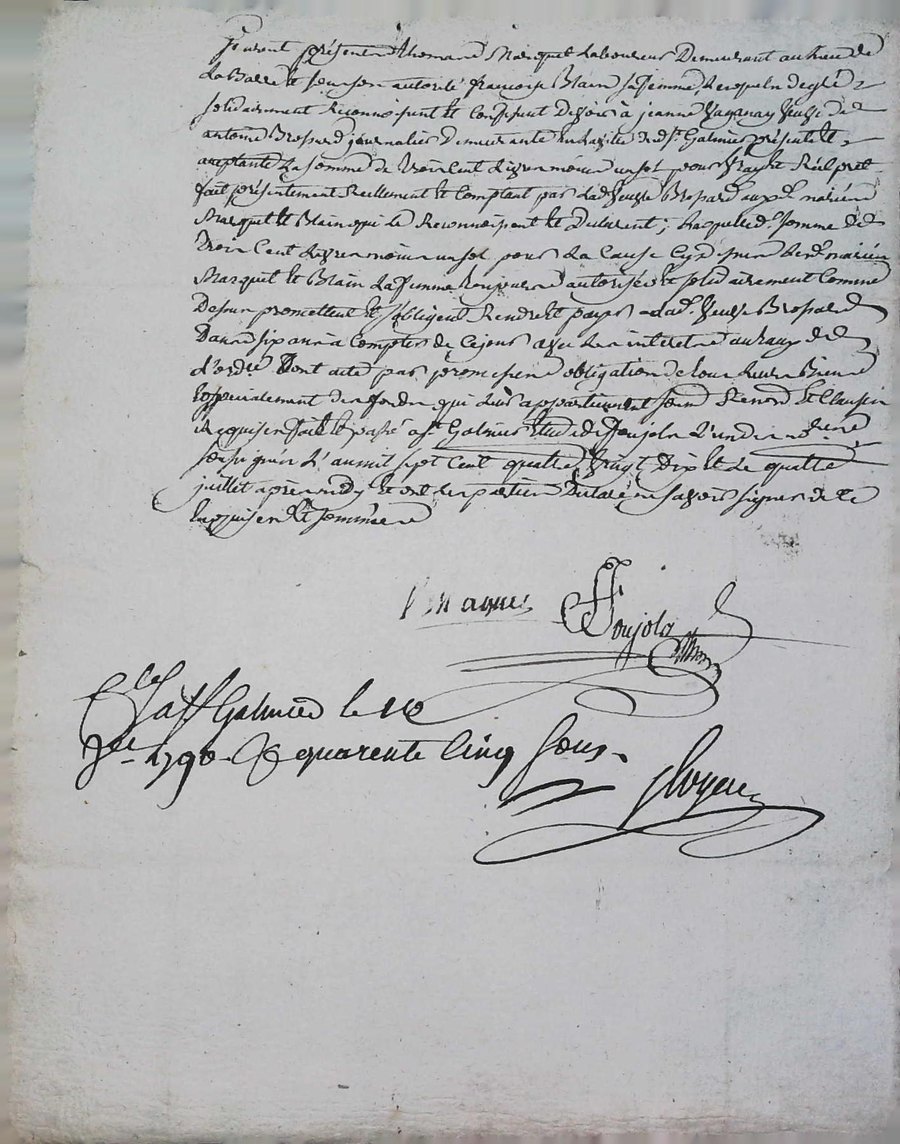 furent présents thomas Marquet Laboureur Demeurant au lieu de
La et sous son autorité françoise Blain sa femme, lesquels de gré
solidairement Reconnoissent et Confessent Devoir à jeanne veuve de
antoine Brossard journalier Demeurante en la ville de St. Galmier présente et
acceptante La somme de trois Cent Livres moins un sol pour vray et Réel prêt
fait présentement Reellement et Comptant par lad. veuve Brossard auxd. mariés
Marquet et Blain qui le Reconnoissent et Declarent; Laquelle d. somme de
trois Cent Livres moins un sol pour La Cause Cy dessus lesd. mariés
Marquet et Blain La femme toujours autorisée et solidairement Comme
Dessus promettent et s'obligent Rendre et payer a lad. veuve Brossard
Dans six ans à Compter de Ce jour avec les intérêts au taux
d'ordce Dont acte par promesses obligation de tous leurs Biens
Et spécialement des fonds qui leurs appartiennent et Clauses
Requises fait et passé a St Galmier Etude de foujols L'un des nores
soussignés L'an mil sept Cent quatre vingt dix et le quatre
juillet après midy et ont les parties Déclaré ne savoir signer de Ce
Enquises et sommées
foujols
Clé à St Galmier le 10
Jet 1790 R quarente Cinq sous